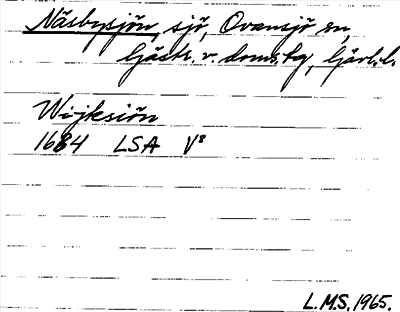 Näsbysjön, sjö, Ovansjö sn,
Gästr. v. doms.tg, Gävl.l.
Wijksiön
1684 LSA V8
L.M.S. 1965.